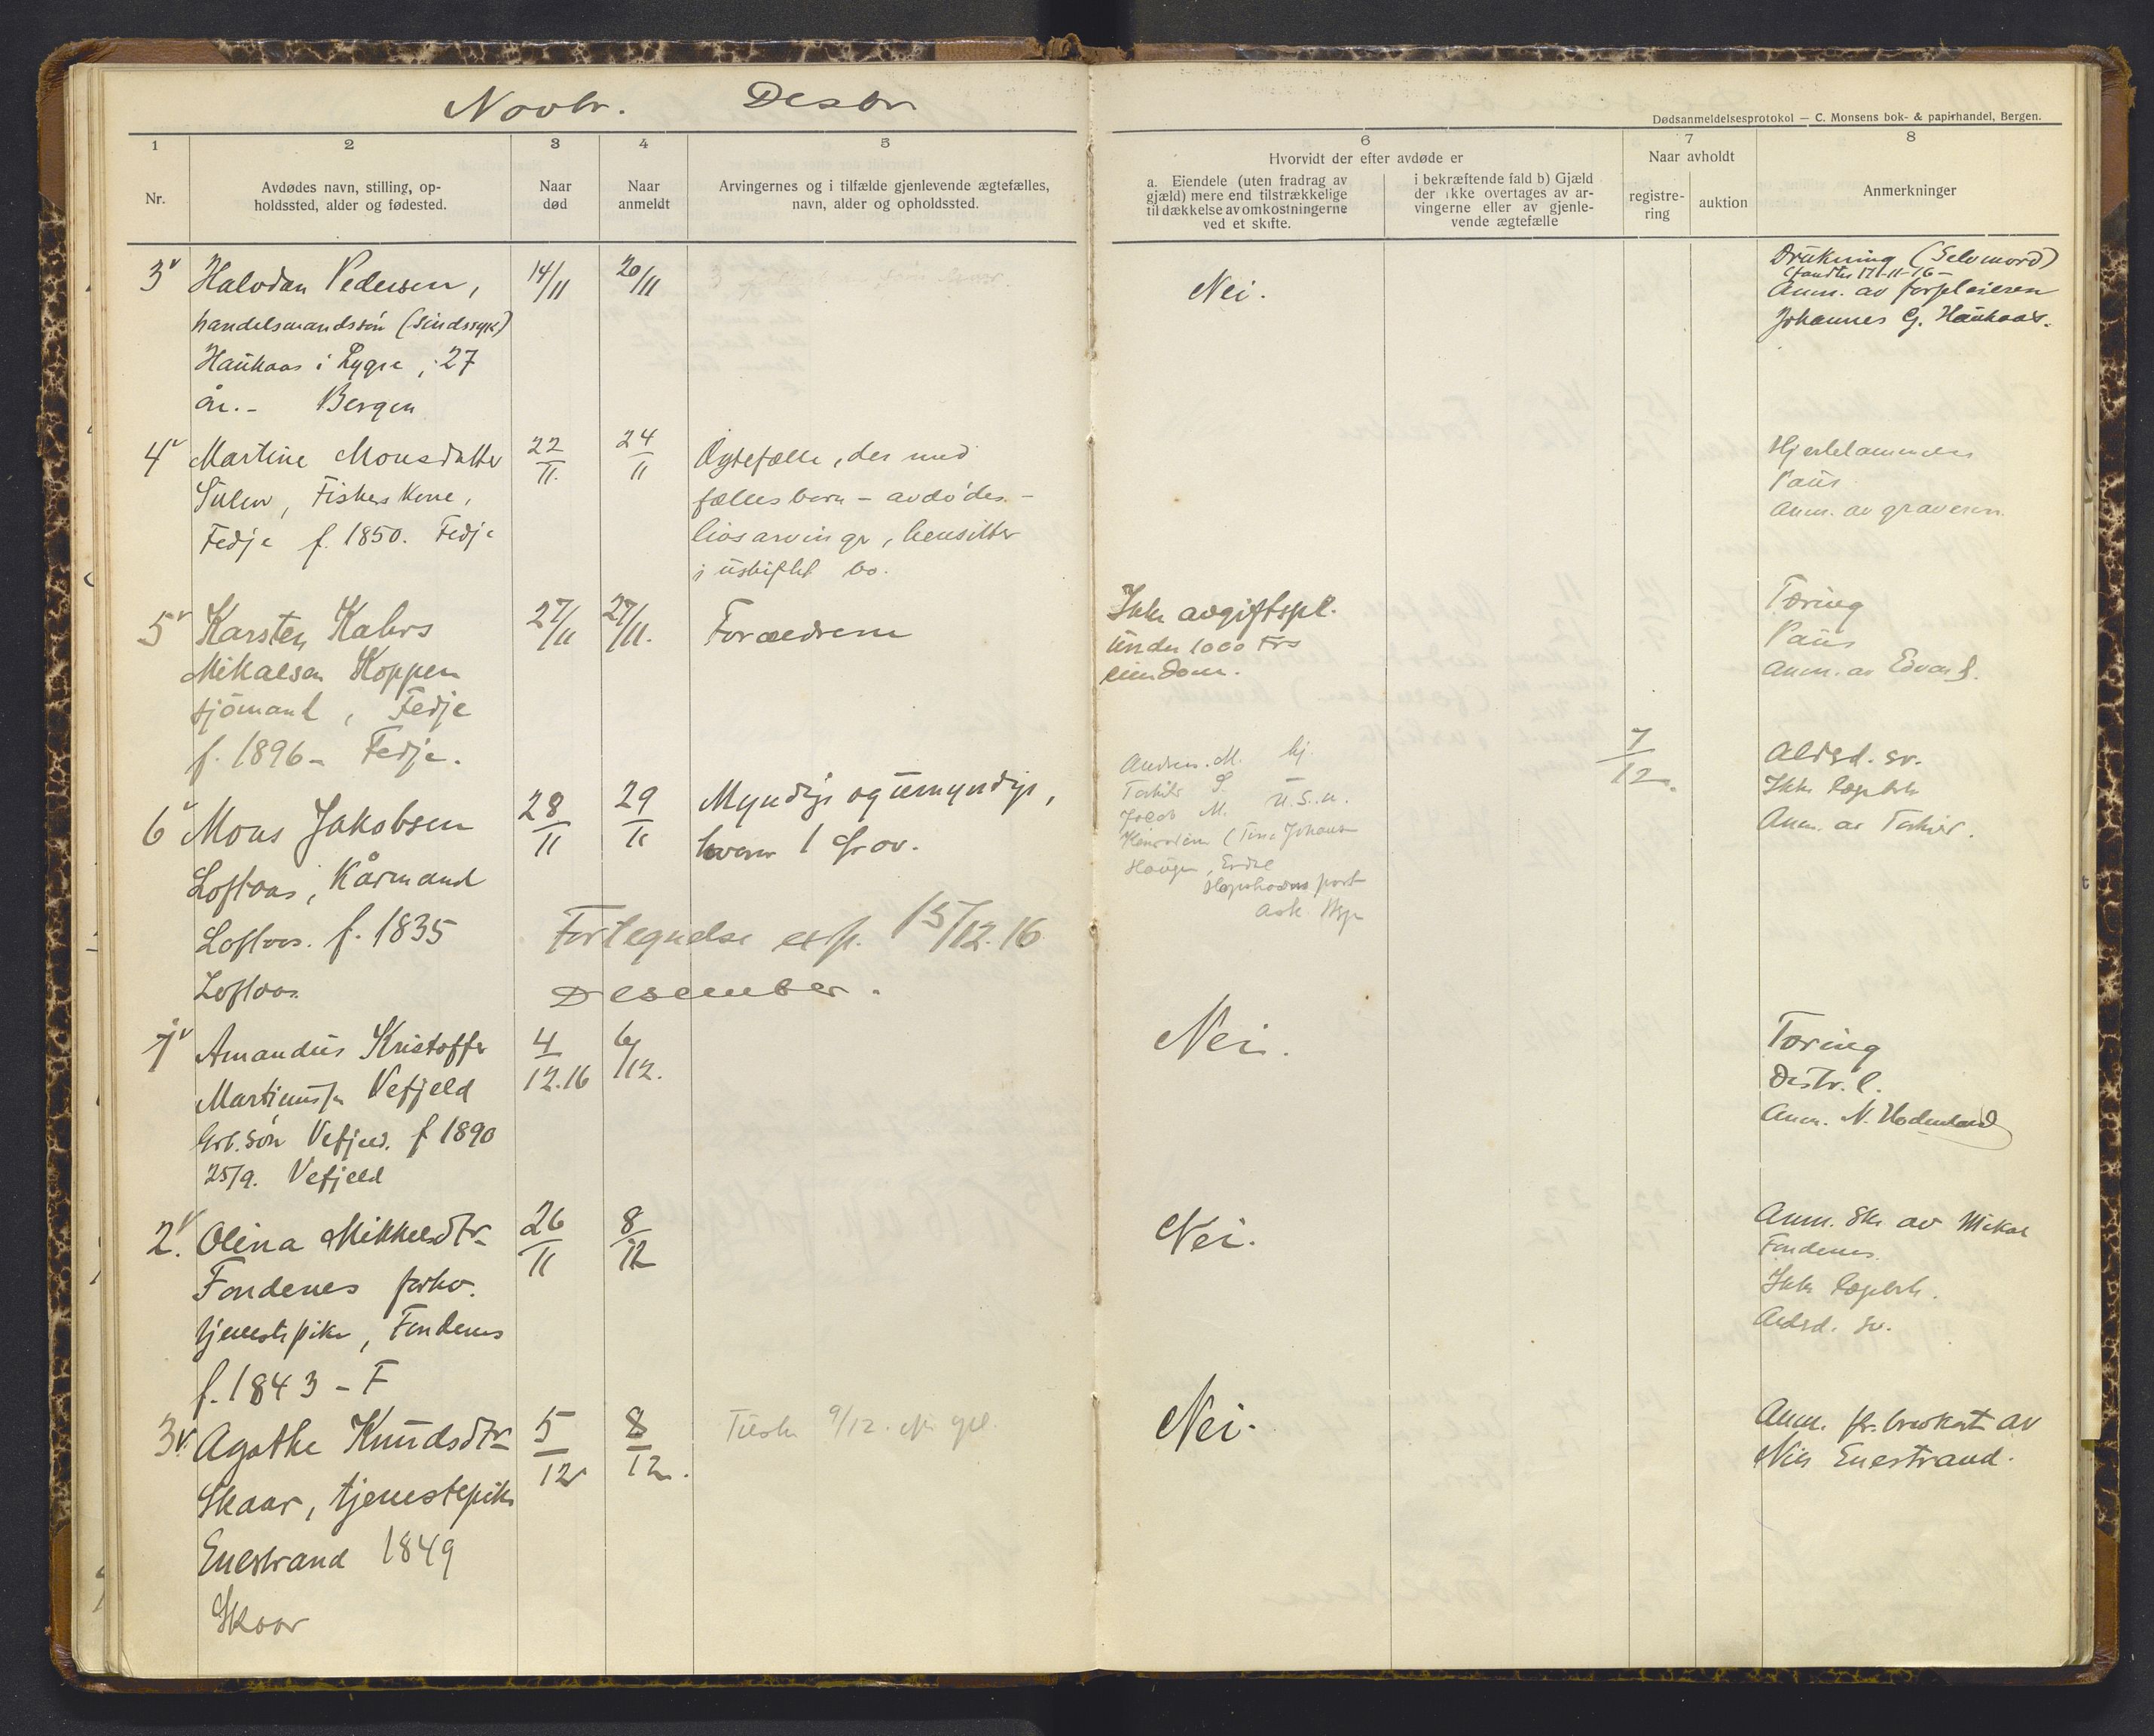 Novbr. Desbr
Dødsanmeldelsesprotokol — C. Monsens bok- & papirhandel, Bergen.
1
Nr.
2
Avdødes navn, stilling, op-
holdssted, alder og fødested.
3
Naar
død
4
Naar
anmeldt
5
Arvingernes og i tilfælde gjenlevende ægtefælles,
navn, alder og opholdssted.
6
Hvorvidt der efter avdøde er
a. Eiendele (uten fradrag av
gjæld) mere end tilstrækkelige
til dækkelse av omkostningerne
ved et skifte.
i bekræftende fald b) Gjæld
der ikke overtages av ar-
vingerne eller av gjenle-
vende ægtefælle
7
Naar avholdt
registre-
ring
auktion
8
Anmerkninger
3 Halvdan Pedersen, 14/11 20/11
handelsmandssøn (sindssyk)
Haukaas i Lygre, 27
år. - Bergen
Nei.
Drukning (Selvmord)
17-11-16-
Anm. av forpleieren
Johannes G. Haukaas.
4 Martine Monsdatter 22/11. 24/11
Sulen, Fiskers kone,
Fedje f. 1850. Fedje
Ægtefælle, der med
fælles barn - avdødes -
livsarvinger, hensitter
i uskiftet bo.
Hjertelammelse
Paus
Anm. av graveren.
5 Karsten Kahrs 27/11 27/11.
Mikalsen Koppen
sjömand, Fedje
f. 1896 - Fedje.
Forældrene
Ikke avgiftspl.
under 1000 Frs
eiendom.
Tæring
Paus
Anm. av Edvard
6 Mons Jakobsen 28/11 29/11
Loftaas, Kårmand
Loftaas. f. 1835
Loftaas.
Myndige og umyndige,
hvorav 1 frav.
Andreas. M.
Jacob M.
7/12.
Alderd. sv.
Ikke lægebeh
Anm. av
Fortegnelse exp. 15/12.16
Desember.
1 Amandus Kristoffer 4/12.16 6/12.
Martinussn Vefjeld
Grb.søn Vefjeld. f 1890
25/9. Vefjeld
Nei.
Tæring
Distr. l.
Anm. N. Hodneland
2. Olina Mikkelsdtr 26/11 8/12
Fondenes forhv.
tjenestepike, Fondenes
f. 1843 - F
Nei.
Anm. Skr av Mikal
Fondenes.
Ikke lægebeh.
Alderd. sv.
3 Agathe Knudsdtr 5/12 8/12.
Skaar, tjenestepike
Enestrand 1849
Skaar
9/12.
Nei.
Anm. pr. brevkort av
Nils Enestrand.